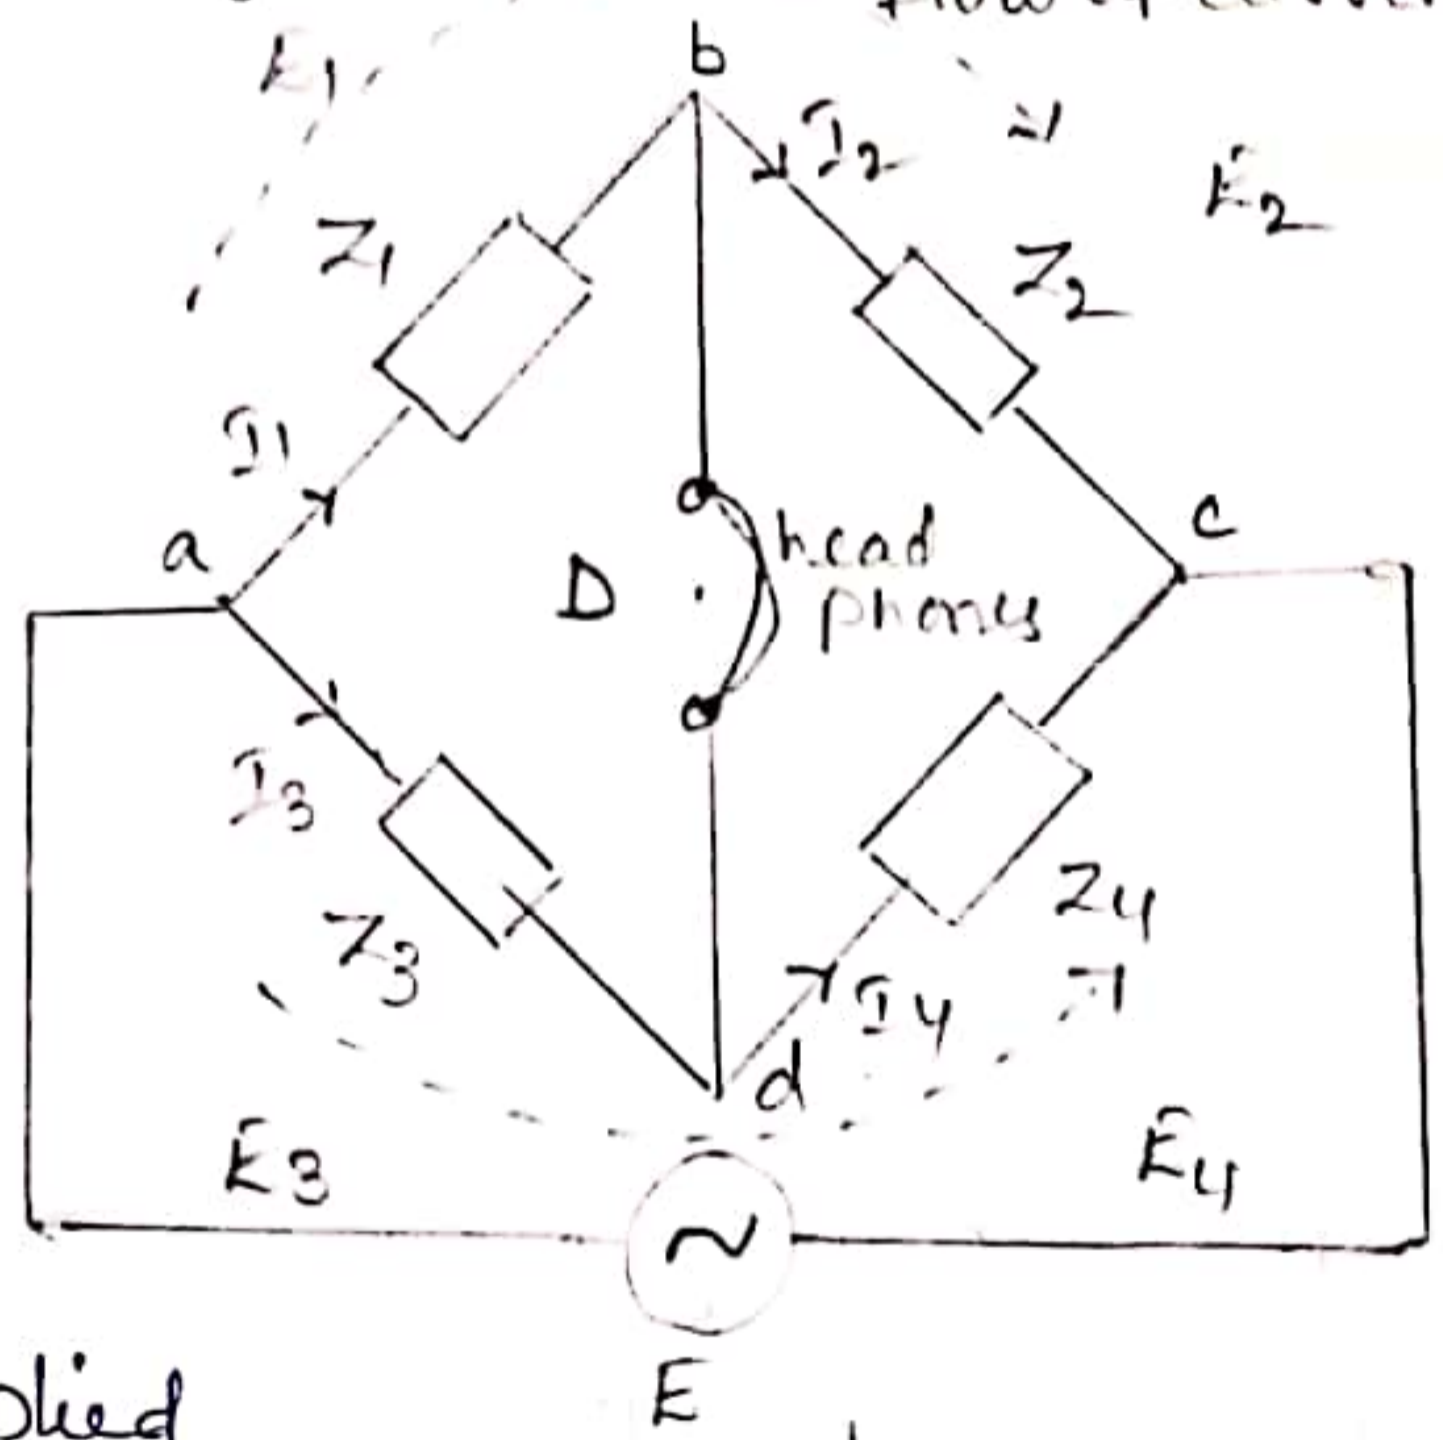 b
E1
I2
E2
Z1
Z2
I1
a
c
head
D
phones
I3
Z4
Z3
I4
d
E3
E4
E